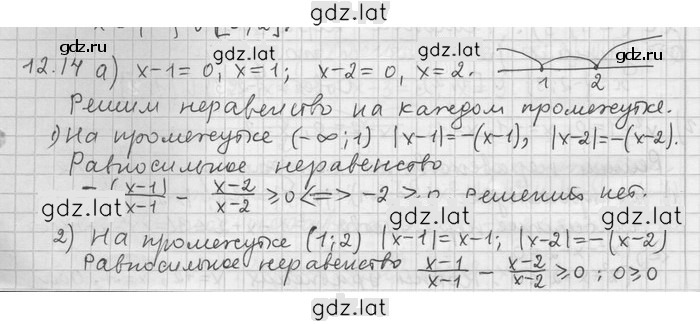 gdz.lat
gdz.ru gdz.lat gdz.ru
12.14 а) x-1=0, x=1; x-2=0, x=2. 1 2
Решим неравенство на каждом промежутке.
1) На промежутке (-∞;1) |x-1|=-(x-1), |x-2|=-(x-2).
Равносильное неравенство
-(x-1)/x-1 - x-2/x-2 ≥0 <=> -2 ≥ 0 решений нет.
gdz.lat gdz.lat gdz.lat
2) На промежутке (1;2) |x-1|=x-1; |x-2|=-(x-2)
Равносильное неравенство x-1/x-1 - (x-2)/x-2 ≥0; 0≥0
gdz.lat